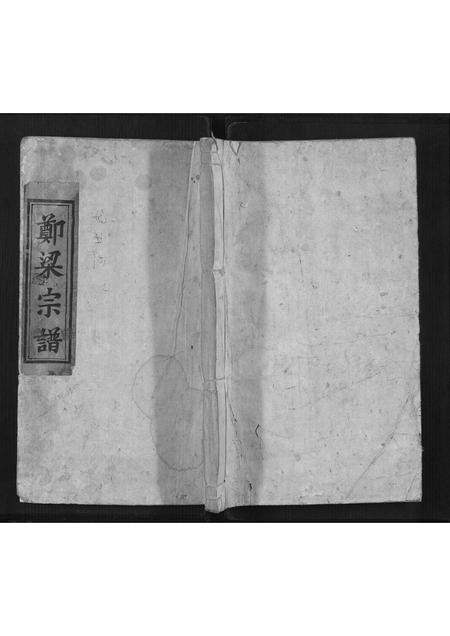 鄭梁宗譜